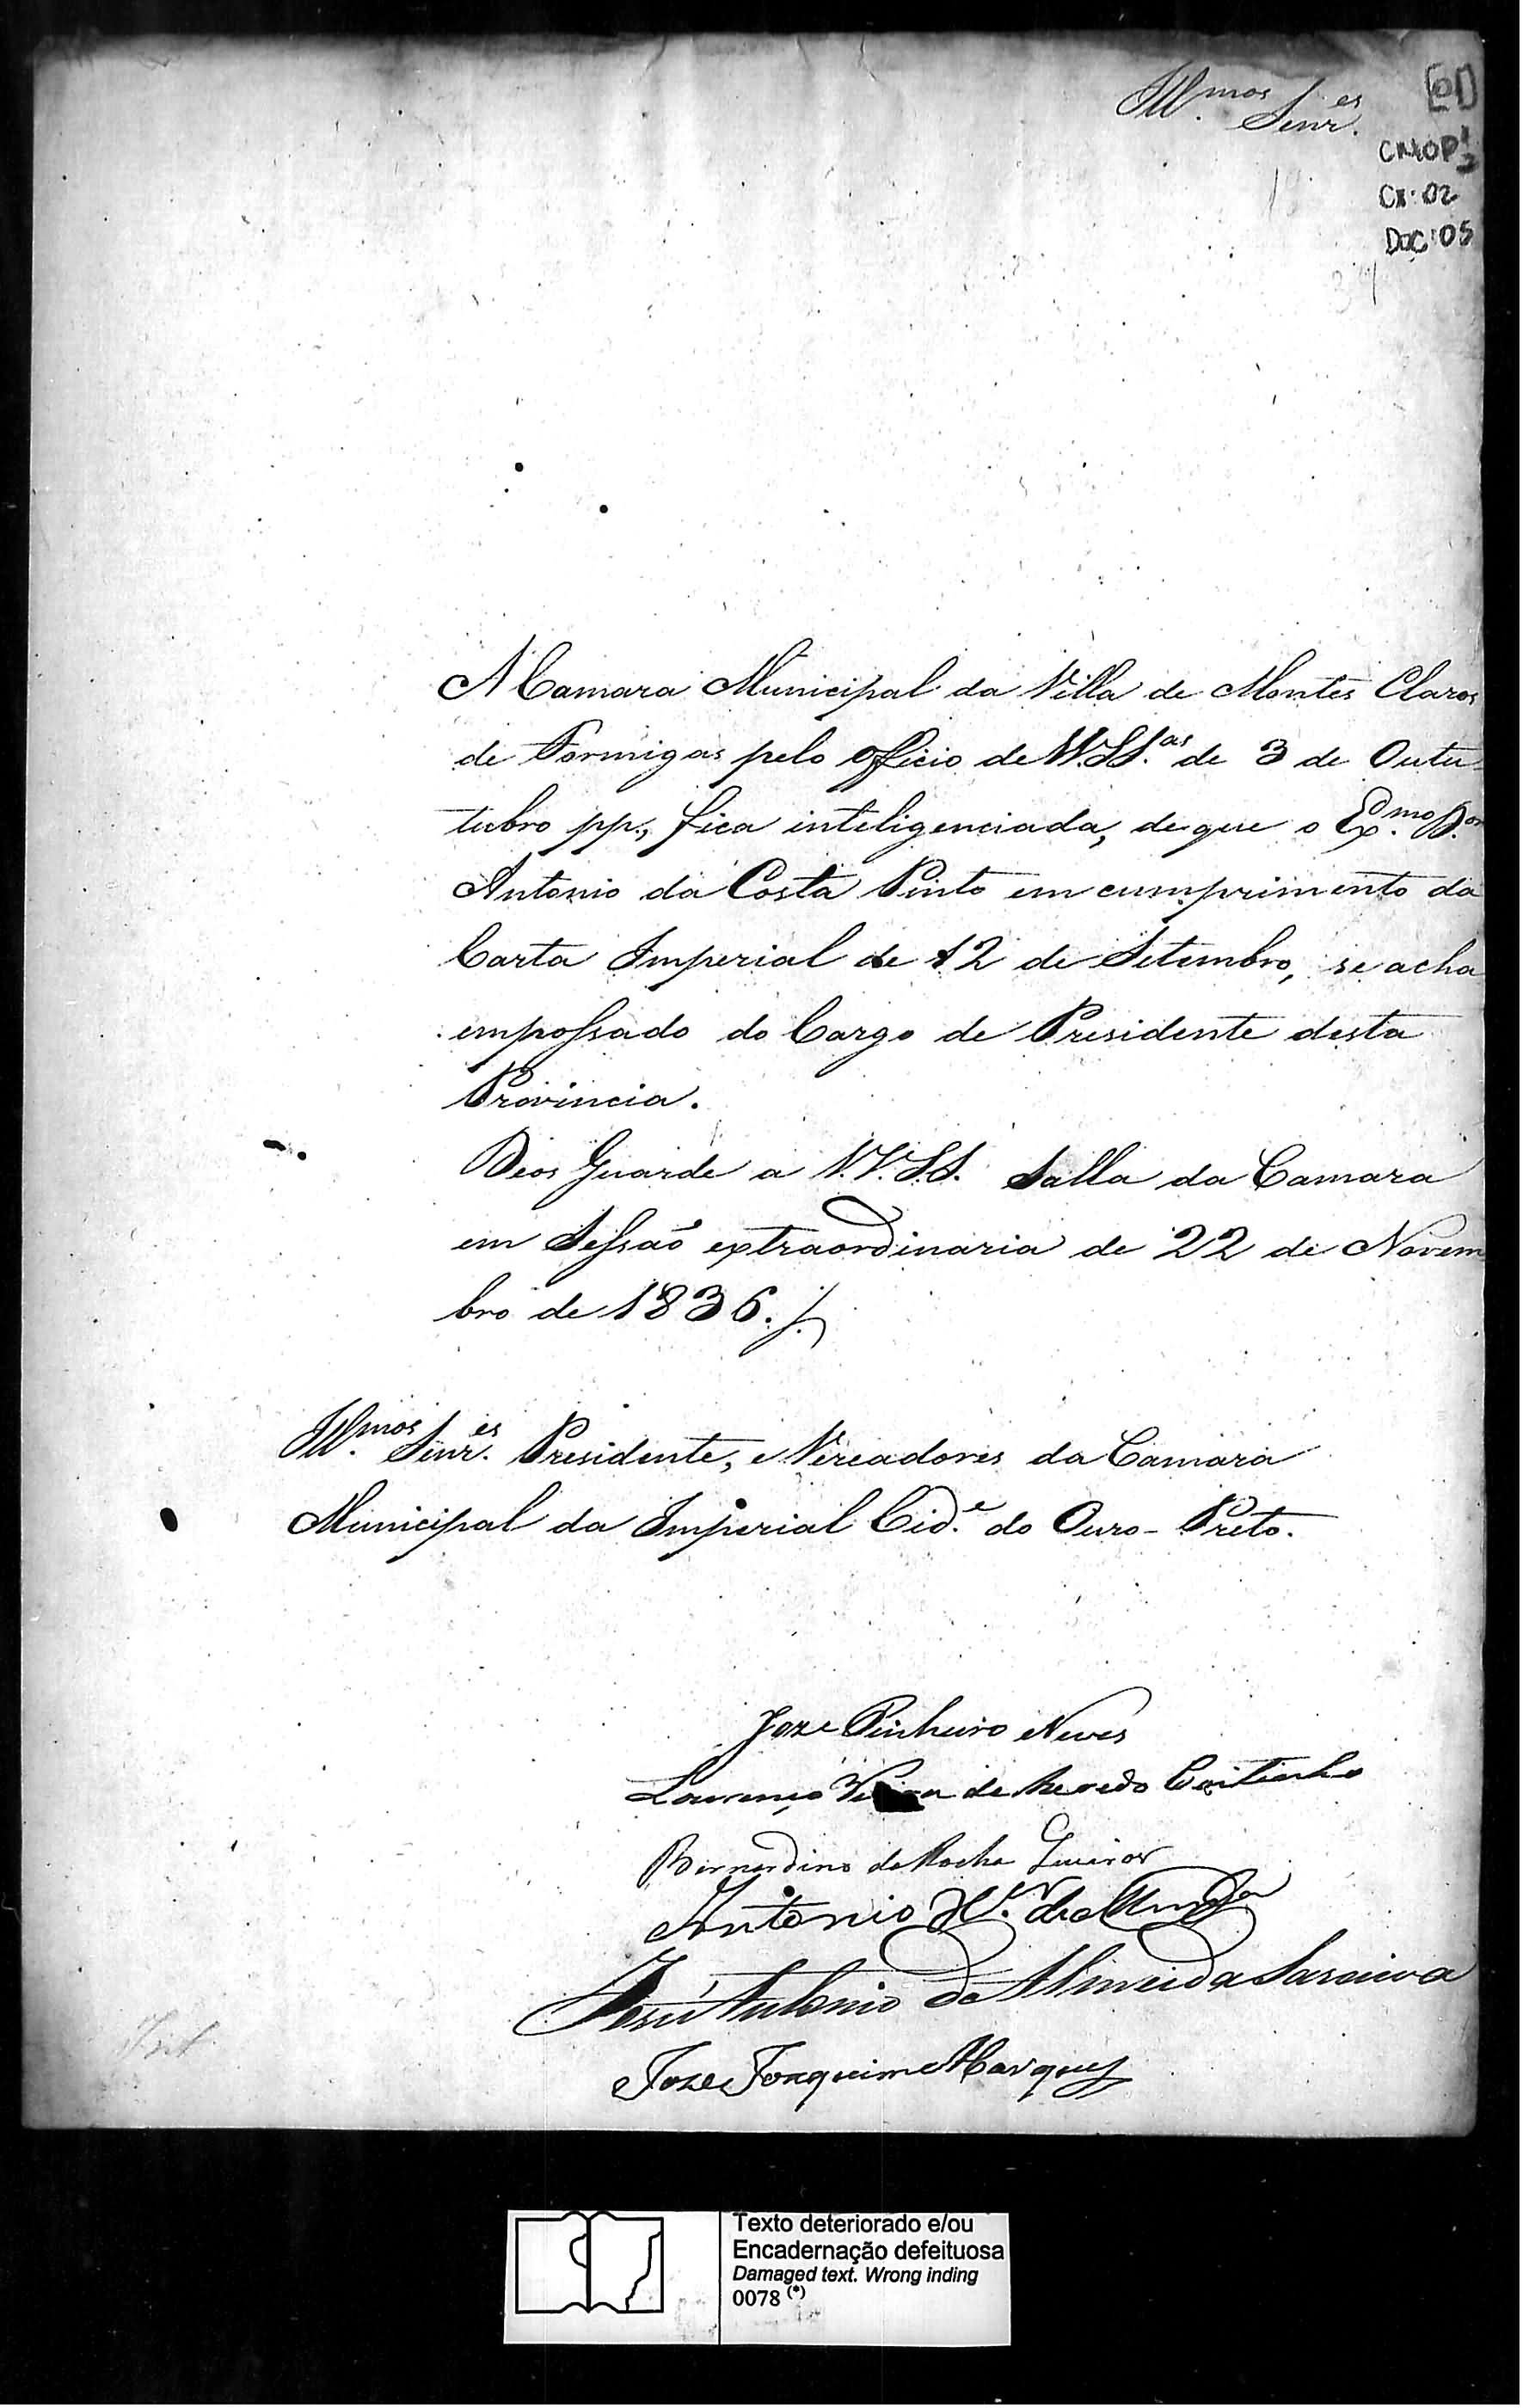 Ill.mos Senr.es
[01]
CMOP 1/2
CX: 02
DOC: 05
A Camara Municipal da Villa de Montes Claros
de Formigas pelo officio de VV.SS.as de 3 de Outu
tubro pp., fica inteligenciada, de que o Ex.mo D.or
Antonio da Costa Pinto em cumprimento da
Carta Imperial de 12 de Setembro, se acha
empossado do Cargo de Presidente desta
Provincia.
Deos Guarde a V.V.S.S. Salla da Camara
em Sessaõ extraordinaria de 22 de Novem
bro de 1836.
Ill.mos Senr.es Presidente, e Vereadores da Camara
Municipal da Imperial Cid.e do Ouro-Preto.
Joze Pinheiro Neves
Lourenço Vieira de Azeredo Coitinho
Bernardino da Rocha Queiros
Antonio X.er de
José Antonio de Almeida Saraiva
Joze Joaquim Marques
Texto deteriorado e/ou
Encadernação defeituosa
Damaged text. Wrong inding
0078 (*)